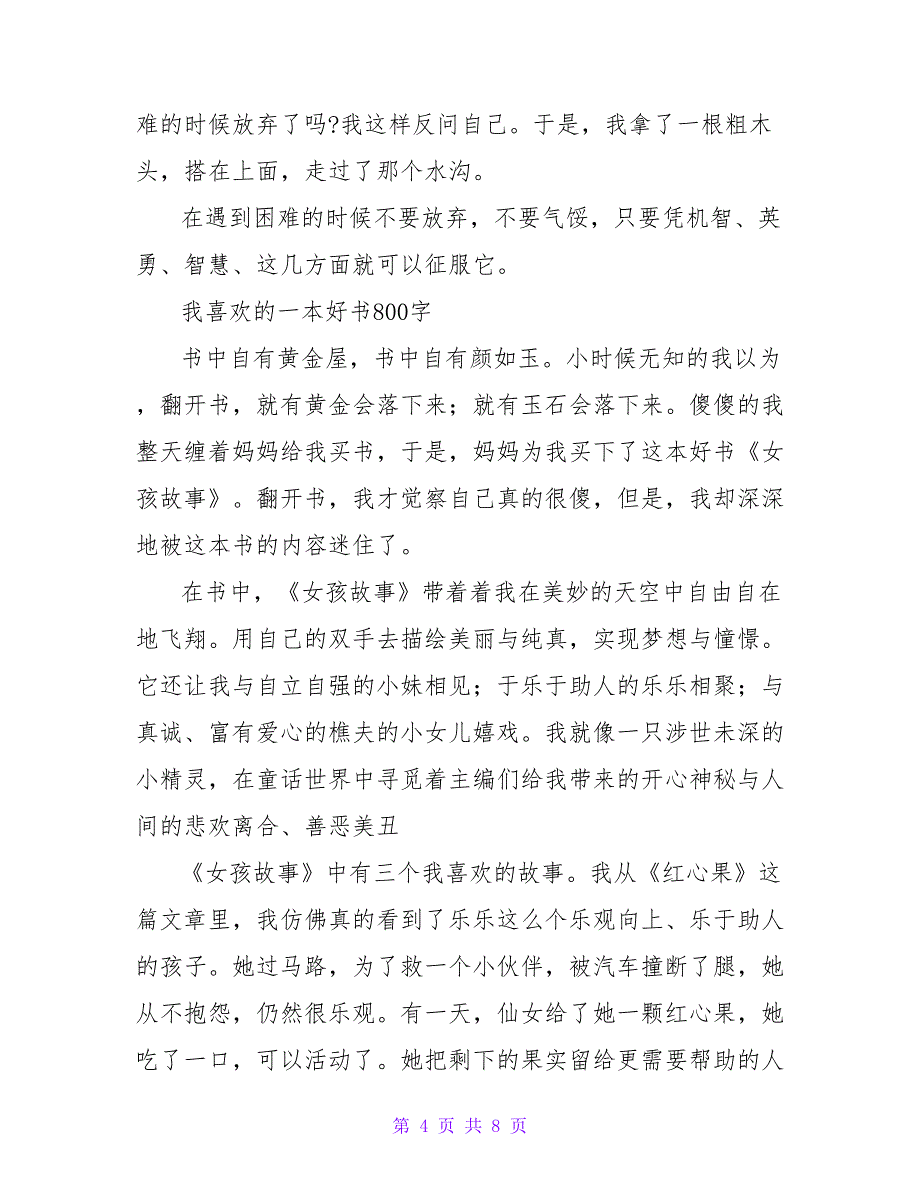 难的时候放弃了吗?我这样反问自己。于是，我拿了一根粗木
头，搭在上面，走过了那个水沟。
在遇到困难的时候不要放弃，不要气馁，只要凭机智、英
勇、智慧、这几方面就可以征服它。
我喜欢的一本好书800字
书中自有黄金屋，书中自有颜如玉。小时候无知的我以为
，翻开书，就有黄金会落下来；就有玉石会落下来。傻傻的我
整天缠着妈妈给我买书，于是，妈妈为我买下了这本好书《女
孩故事》。翻开书，我才觉察自己真的很傻，但是，我却深深
地被这本书的内容迷住了。
在书中，《女孩故事》带着着我在美妙的天空中自由自在
地飞翔。用自己的双手去描绘美丽与纯真，实现梦想与憧憬。
它还让我与自立自强的小妹相见；于乐于助人的乐乐相聚；与
真诚、富有爱心的樵夫的小女儿嬉戏。我就像一只涉世未深的
小精灵，在童话世界中寻觅着主编们给我带来的开心神秘与人
间的悲欢离合、善恶美丑
《女孩故事》中有三个我喜欢的故事。我从《红心果》这
篇文章里，我仿佛真的看到了乐乐这么个乐观向上、乐于助人
的孩子。她过马路，为了救一个小伙伴，被汽车撞断了腿，她
从不抱怨，仍然很乐观。有一天，仙女给了她一颗红心果，她
吃了一口，可以活动了。她把剩下的果实留给更需要帮助的人
第 4 页 共 8 页